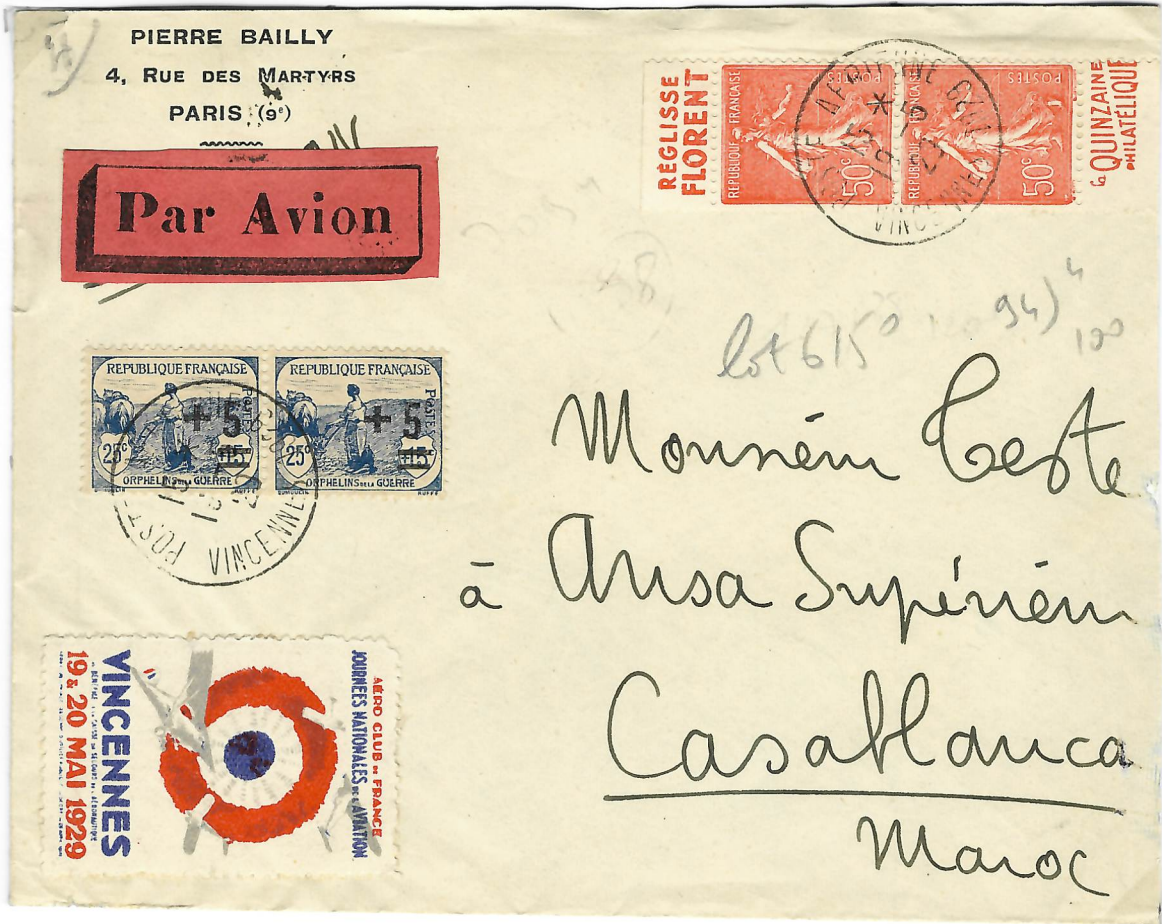 PIERRE BAILLY
4, RUE DES MARTYRS
PARIS (9e)
Par Avion
RÉGLISSE
FLORENT
REPUBLIQUE FRANÇAISE
POSTES
50c
REPUBLIQUE FRANÇAISE
POSTES
50c
la QUINZAINE
PHILATÉLIQUE
POSTE AERIENNE
VINCENNES
lot 615
94)
100
REPUBLIQUE FRANÇAISE
POSTES
+ 5
25c
+15c
ORPHELINS DE LA GUERRE
REPUBLIQUE FRANÇAISE
POSTES
+ 5
25c
+15c
ORPHELINS DE LA GUERRE
POSTE
VINCENNES
Monsieur Teste
à Ansa Supérieur
Casablanca
Maroc
AÉRO CLUB DE FRANCE
JOURNÉES NATIONALES DE L'AVIATION
VINCENNES
19 & 20 MAI 1929